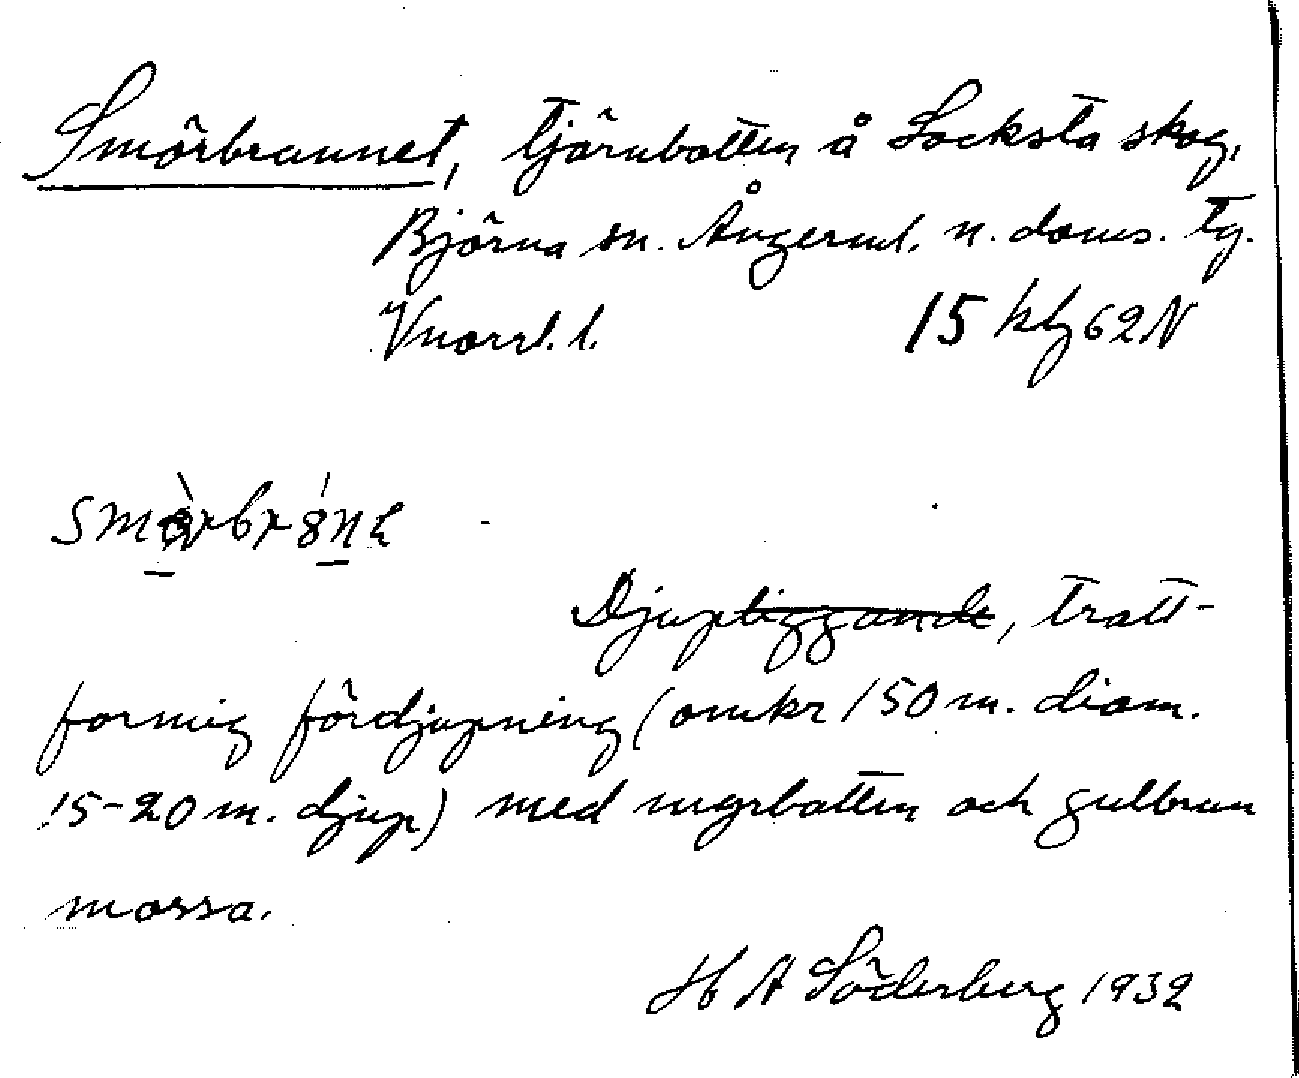 Smörbrunnet, tjärnbotten å Locksta skog,
Björna sn. Ångerml. n. doms. tg.
Vnorrl. l. 15 62 N
Djupliggande, tratt-
formig fördjupning (omkr 150 m. diam.
15-20 m. djup) med myrbotten och gulbrun
mossa.
H A Söderberg 1932